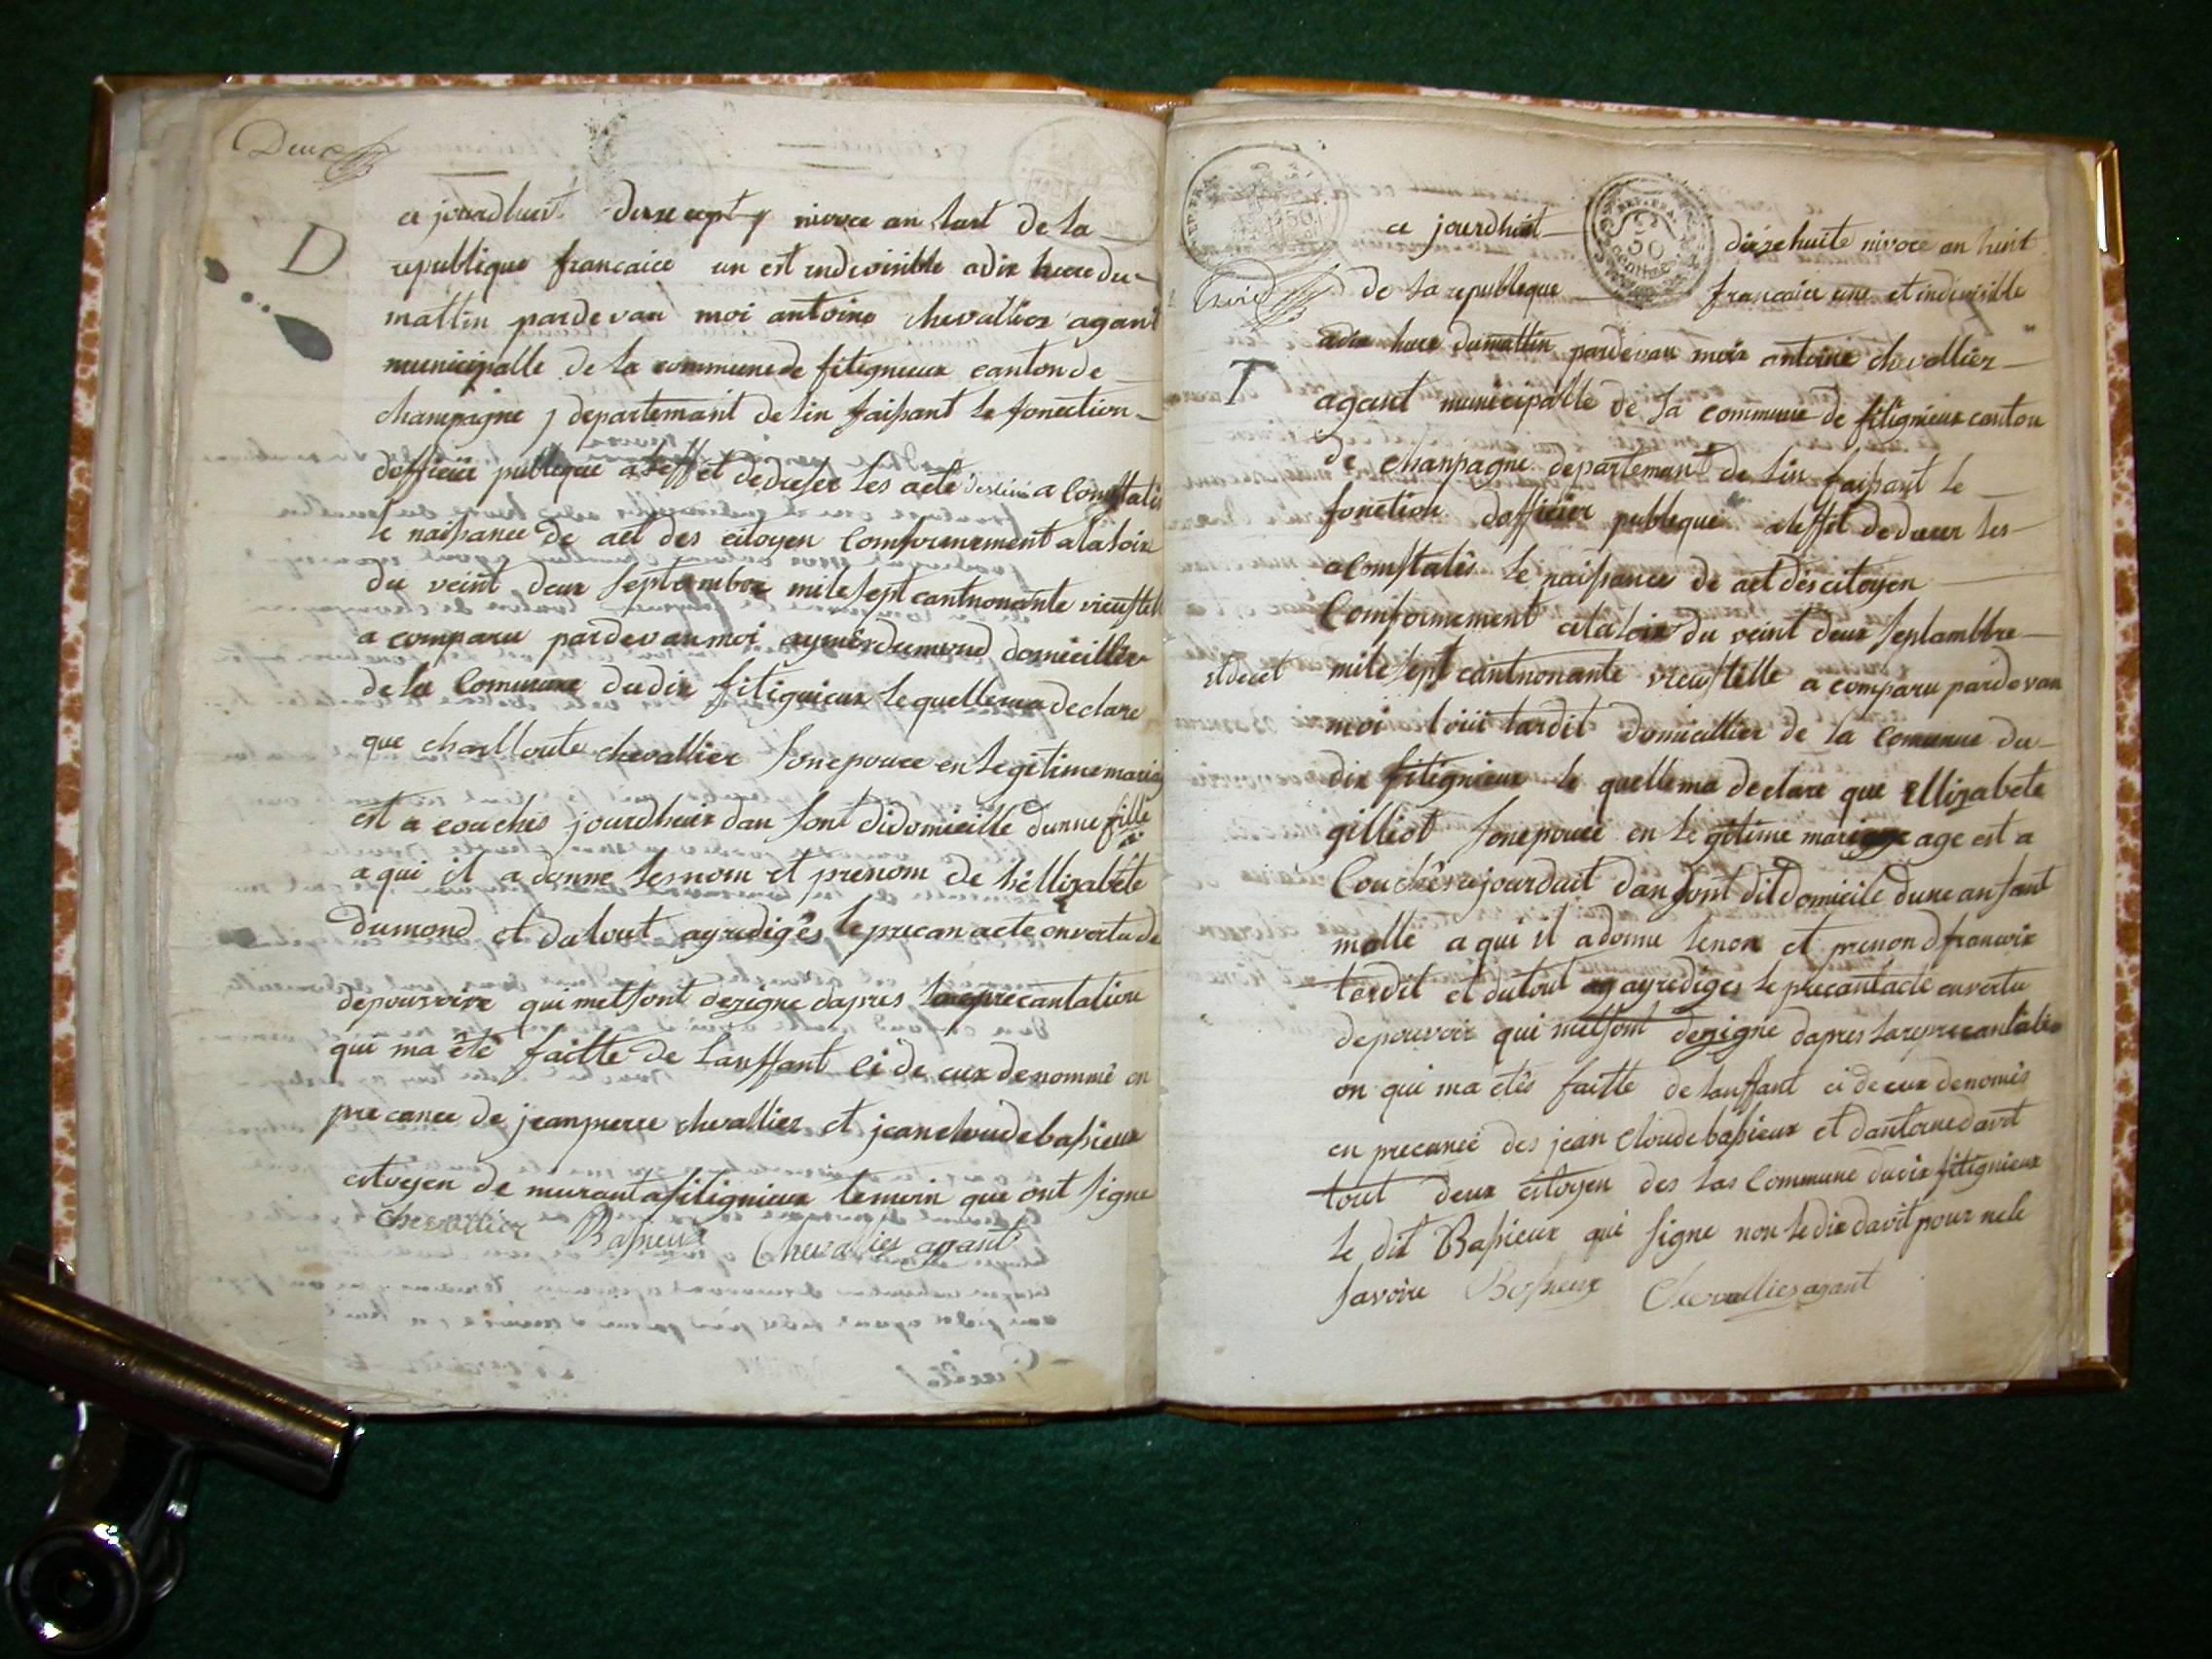 Deux
D
ce jourdhuit dixe cept nivoce an huit de la
republique francaice un est indivisible a dix heure du
mattin pardevan moi antoine chevallier agant
municipalle de la commune de fitignieux canton de
champagne departemant de lin faisant le fonection
dofficier publique a leffet de dreser les acte destiné a Constatés
le naissance de aet des citoyen Comformement a la loix
du veint deux Septembre mile sept cantnonante vieustelle
a comparu pardevan moi aymér dumond domicillier
de la Commune du dix fitignieux lequelle ma declare
que charlloute chevallier Son epouce en legitime mariag
est a couchés jourdheuix dan Sont didomicille dunne fille
a qui il a donne les nom et prenom de héllizabéte
dumond et du tout ay redigés le precan acte en vertu de
de pouvoire qui met sont dezigne dapres la reprecantation
qui ma été faitte de lanffant ci de cux denommé en
precance de jean pierre chevallier et jean cloude bassieux
citoyen de murant a fitignieux temoin que ont Signe
chevallier Bassieux Chevalier agant
ce jourdhuit dizzehuite nivoce an huit
troix de la republique francaice une et indivisible
T
a dix heure du mattin pardevan moix antoine chevallier
agant municipalle de la commune de fitignieux canton
de Chanpagne departemant de lin faisant le
fonction dofficier publeque a leffet de dreser les
a Comstatés le naissance de aet des citoyen
Comformement a la loix du veint deux Septambbre
et decet mile Sept cantnonante vieustelle a comparu pardevan
moi louii tardit domicillier de la Comunne du
dix fitignieux le quelle ma declare que Ellizabete
gilliot Son epouce en legitime mariage age est a
Couchés ajourduit dan Sont dit domicile dune anfant
malle a qui il a donne le non et prenon d francoix
tardit et du tout ay ay rediges le precant acte en vertu
de pouvoir qui met sont dezigne dapres la reprecantatio
on qui ma etés faitte de lanffant ci de cux denomés
en precance des jean cloude bassieux et dantoine davit
tout deux citoyen des las Commune du dix fitignieux
le dit Bassieux qui Signe non le dix davit pour ne le
Savoire Bassieux Chevallier agant
REP. FRA.
50
centimes